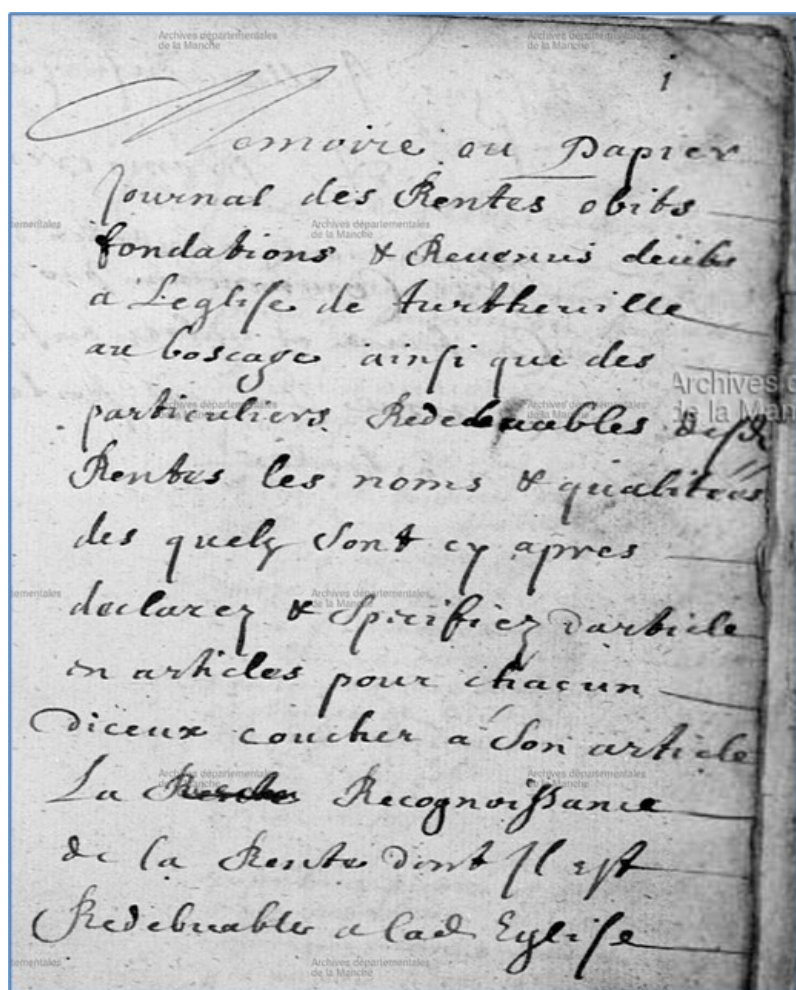 1
Memoire ou Papier
Journal des Rentes obits
fondations & Reuenus deubs
a Leglise de turtheuille
au boscage ainsi que des
particuliers Redebuables desd
Rentes les noms & qualitées
des quelz sont cy apres
declarez & Spicifiez darticle
en articles pour chacun
diceux coucher a son article
La Recognoissance
de la Rente dont Il est
Redebuable a lad Eglise
Archives départementales
de la Manche